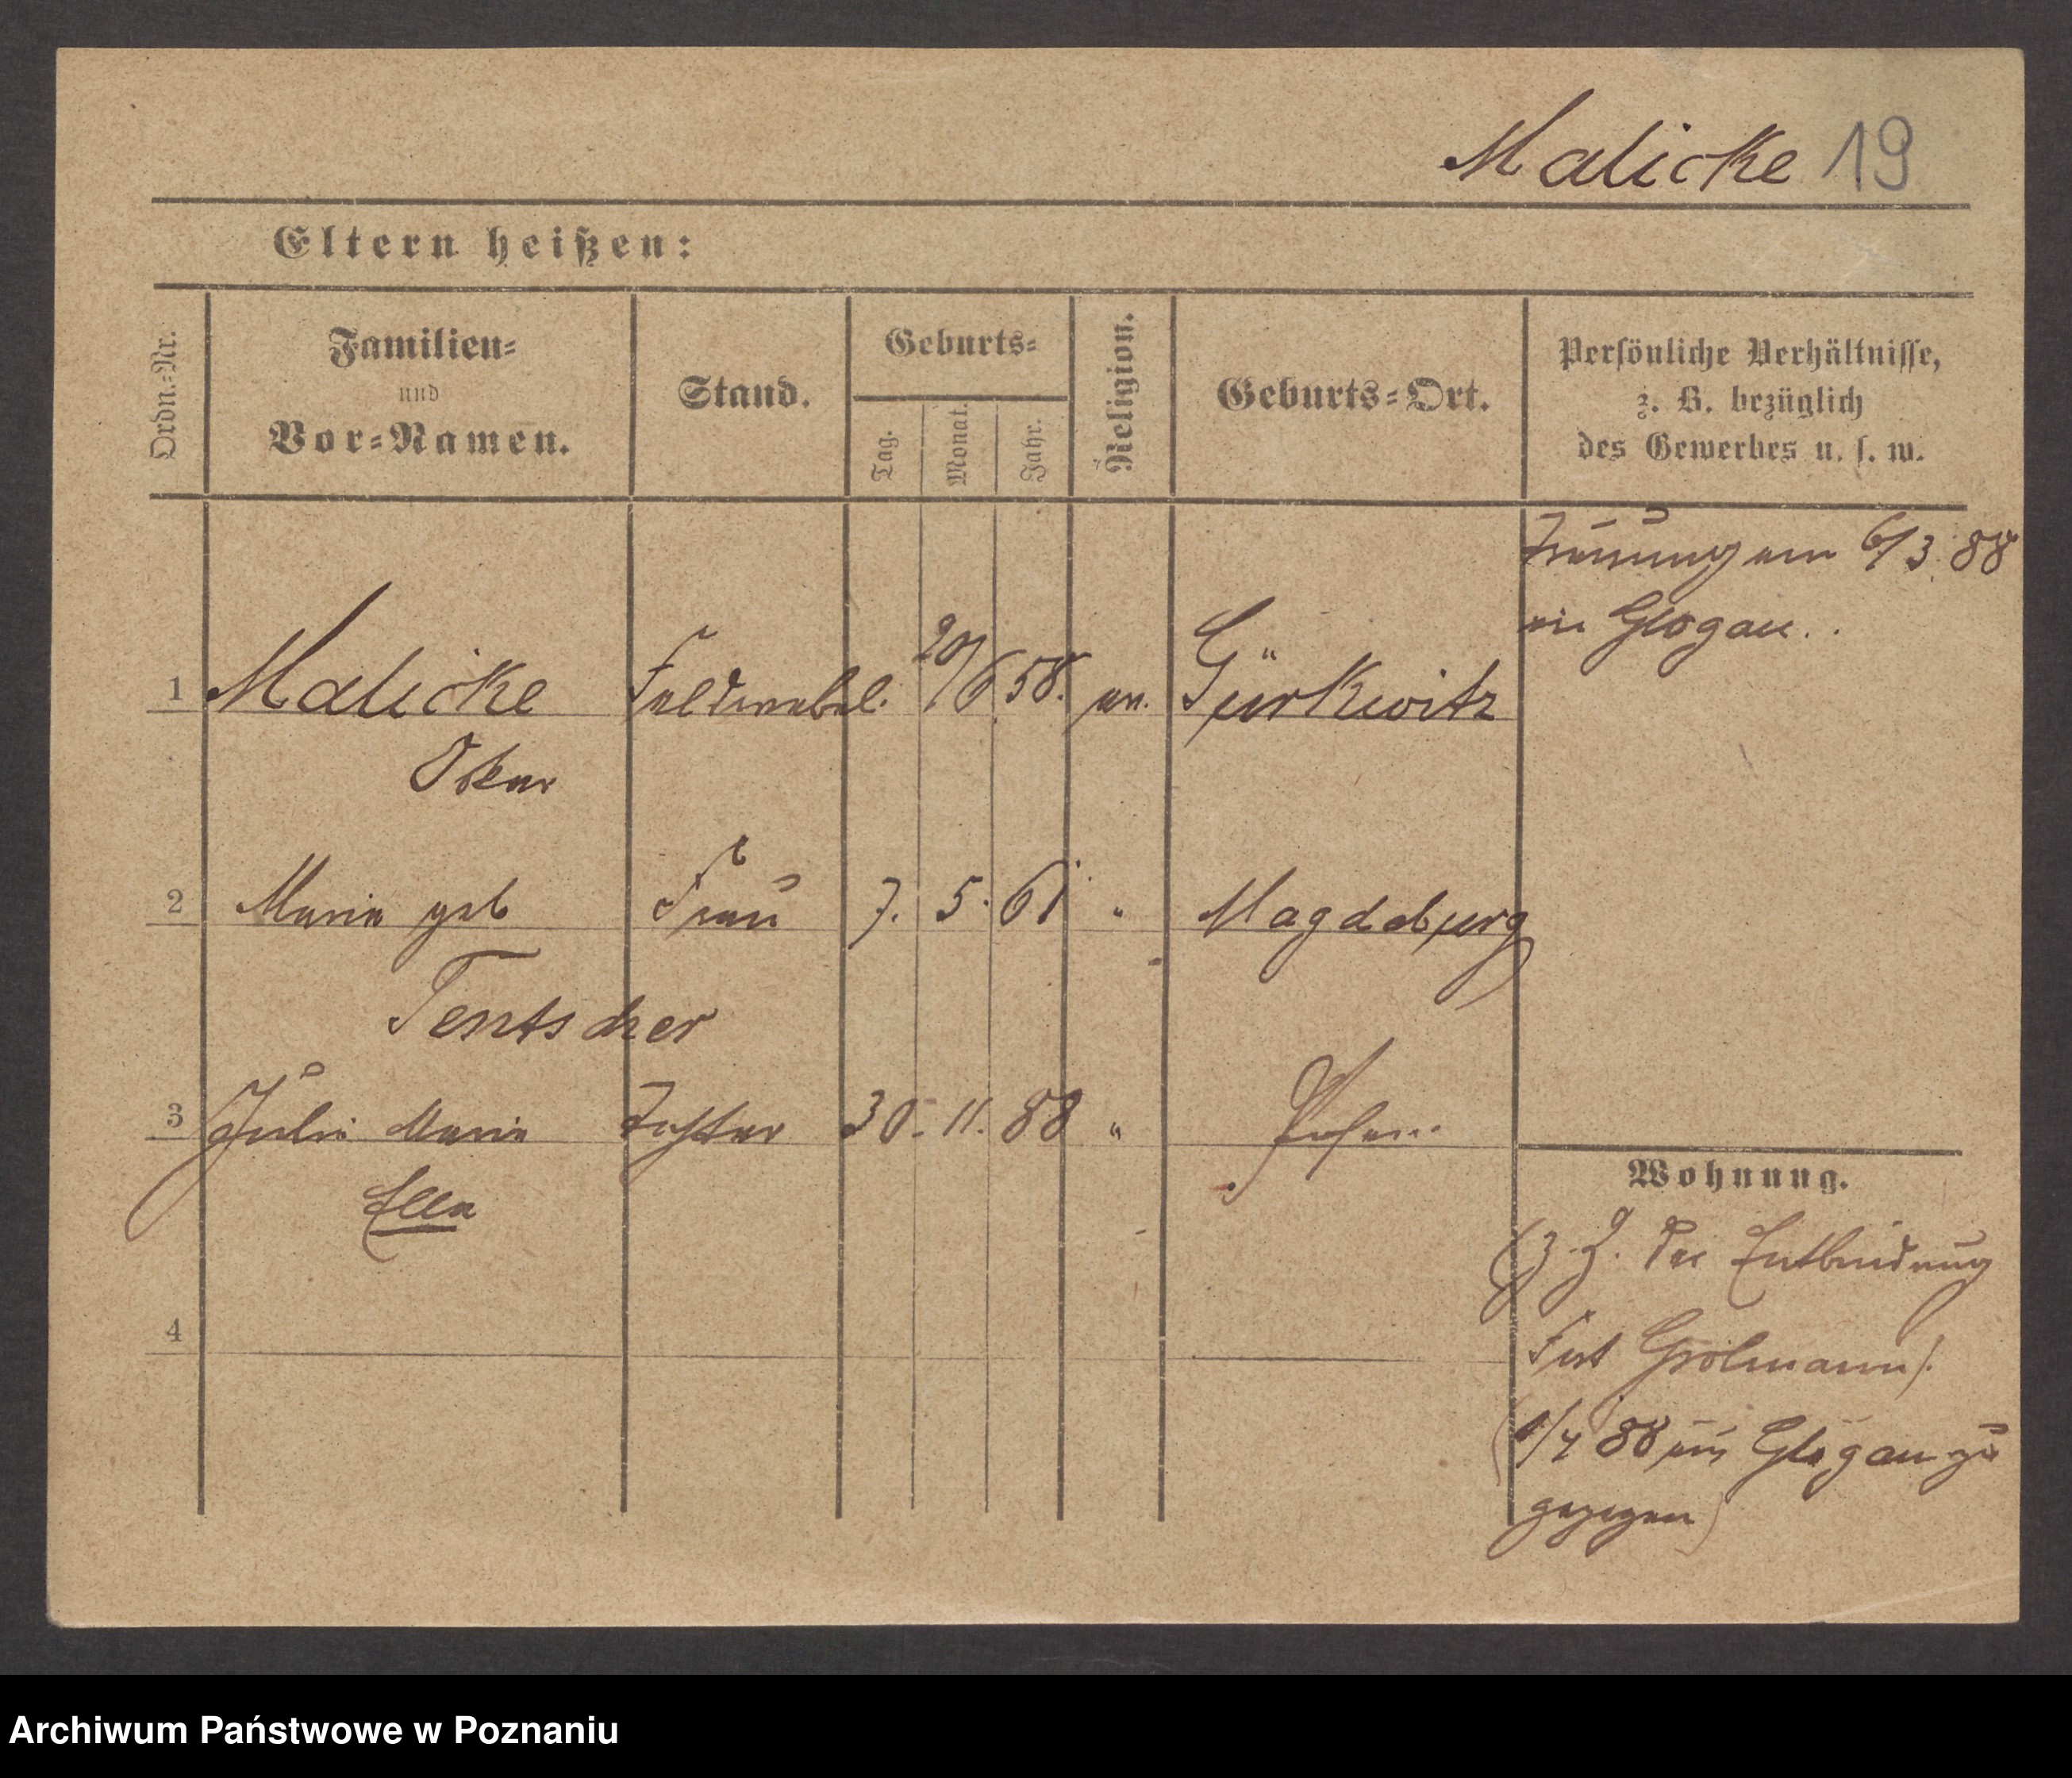 Malicke 19
Eltern heißen:
Ordn.=Nr.
Familien=
und
Vor=Namen.
Stand.
Geburts=
Tag.
Monat.
Jahr.
Religion.
Geburts=Ort.
Persönliche Verhältnisse,
z. B. bezüglich
des Gewerbes u. s. w.
Trauung am 6/3 88
in Glogau.
1 Malicke Feldwebel. 20/6 58. ev. Gürkwitz
Oskar
2 Maria geb Frau 7. 5. 61 " Magdeburg
Tentscher
3 Julie Maria Tochter 30. 11. 88 " Posen.
Ella
4
Wohnung.
(z. Z. der Entbindung
Fort Grolmann).
(1/4 88 aus Glogau zu
gezogen)
Archiwum Państwowe w Poznaniu